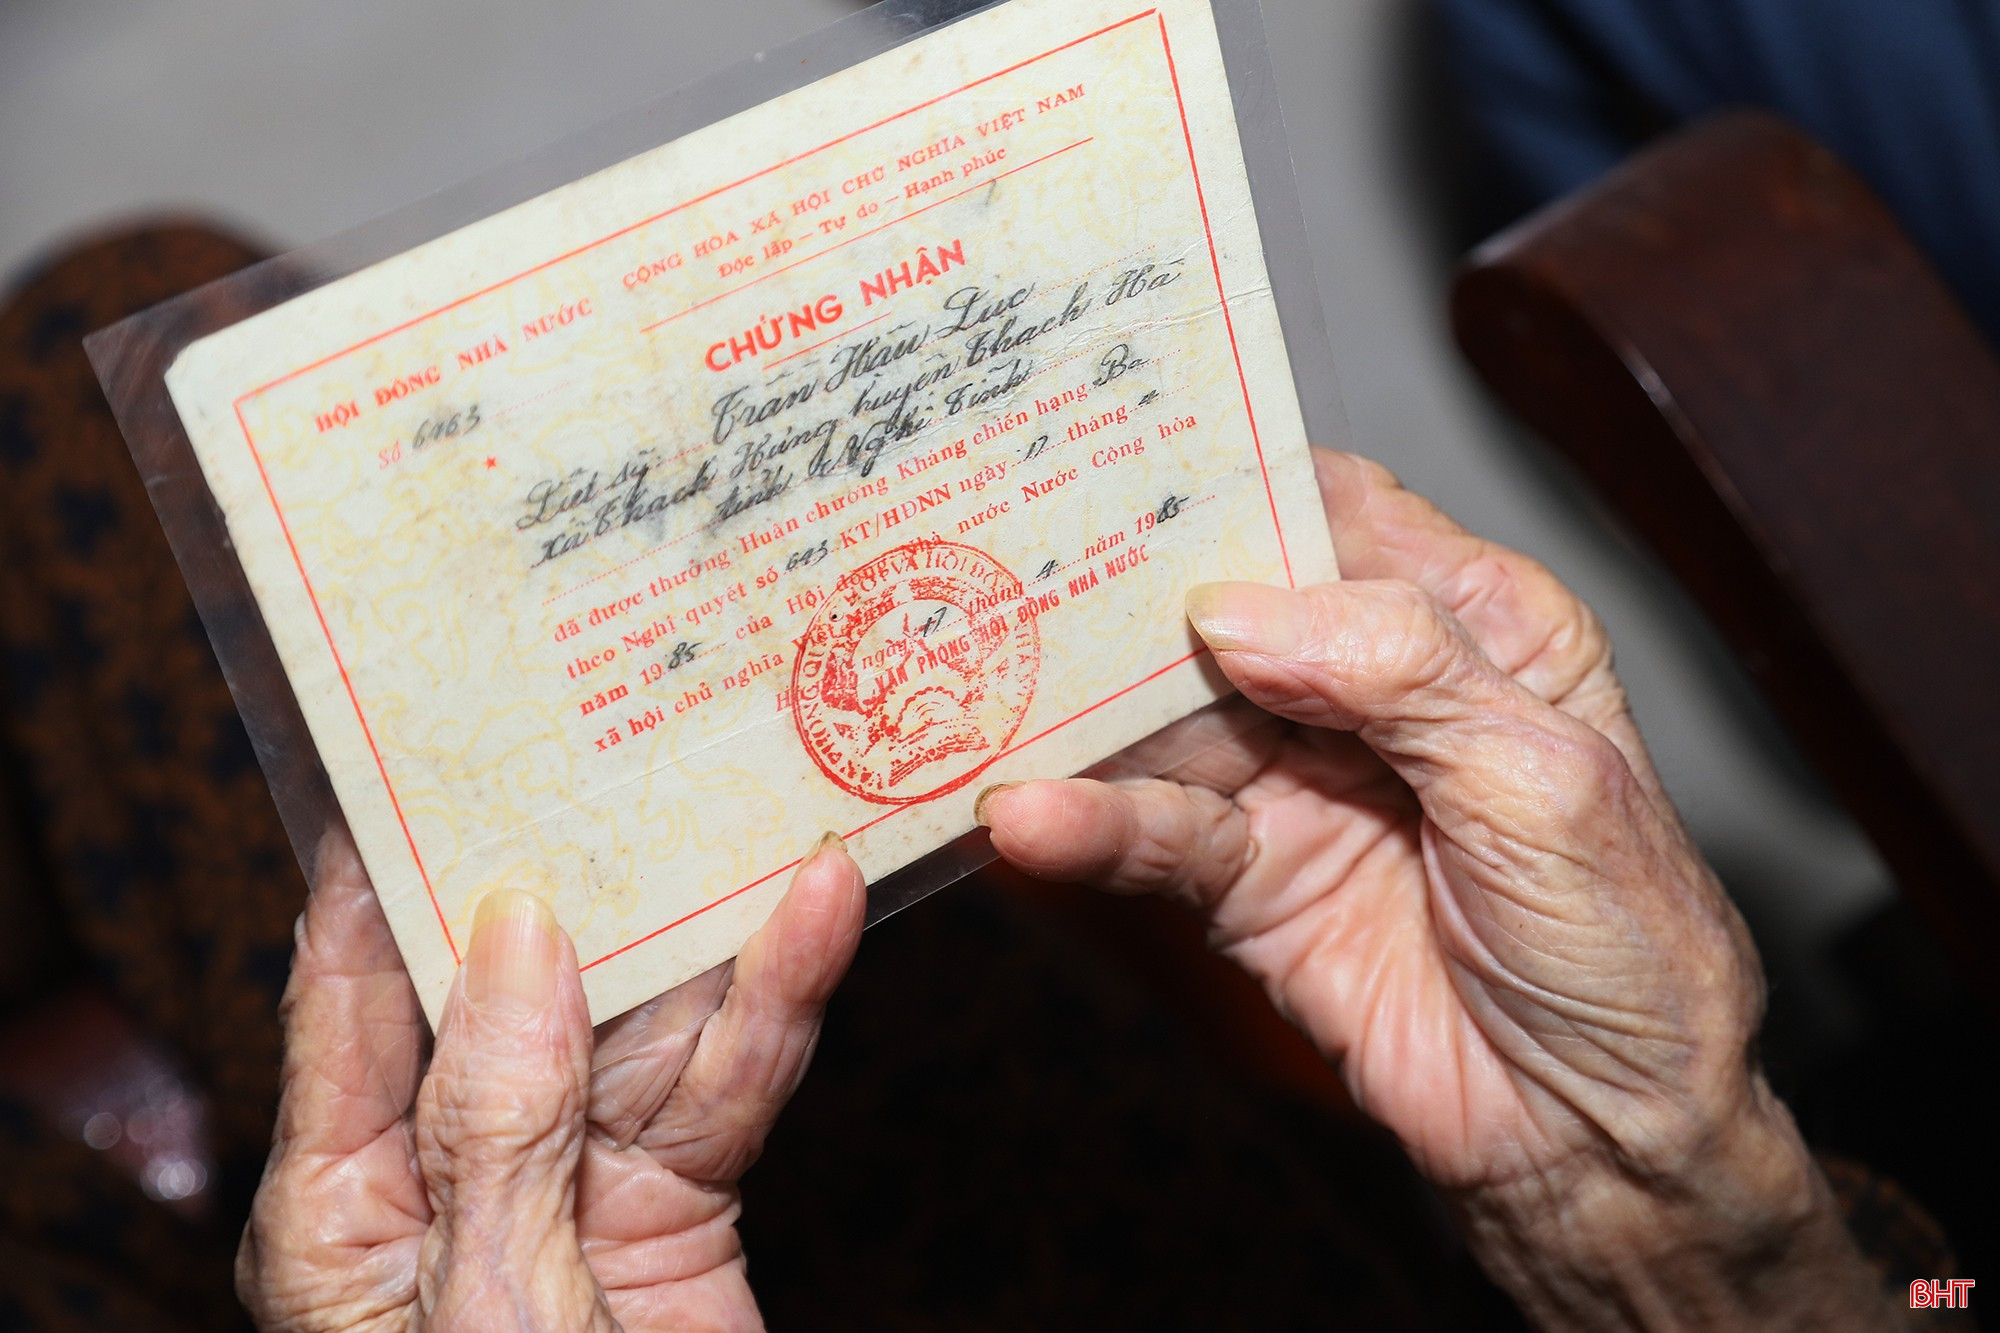 HỘI ĐỒNG NHÀ NƯỚC
Số 6463
CỘNG HÒA XÃ HỘI CHỦ NGHĨA VIỆT NAM
Độc lập — Tự do — Hạnh phúc
CHỨNG NHẬN
Liệt sỹ Trần Hậu Lục
xã Thạch Hưng huyện Thạch Hà
tỉnh Nghệ Tĩnh
đã được thưởng Huân chương Kháng chiến hạng Ba
theo Nghị quyết số 643 KT/HĐNN ngày 17 tháng 4
năm 1985 của Hội đồng Nhà nước Nước Cộng hòa
xã hội chủ nghĩa Việt Nam
ngày 17 tháng 4 năm 1985
VĂN PHÒNG HỘI ĐỒNG NHÀ NƯỚC
BHT